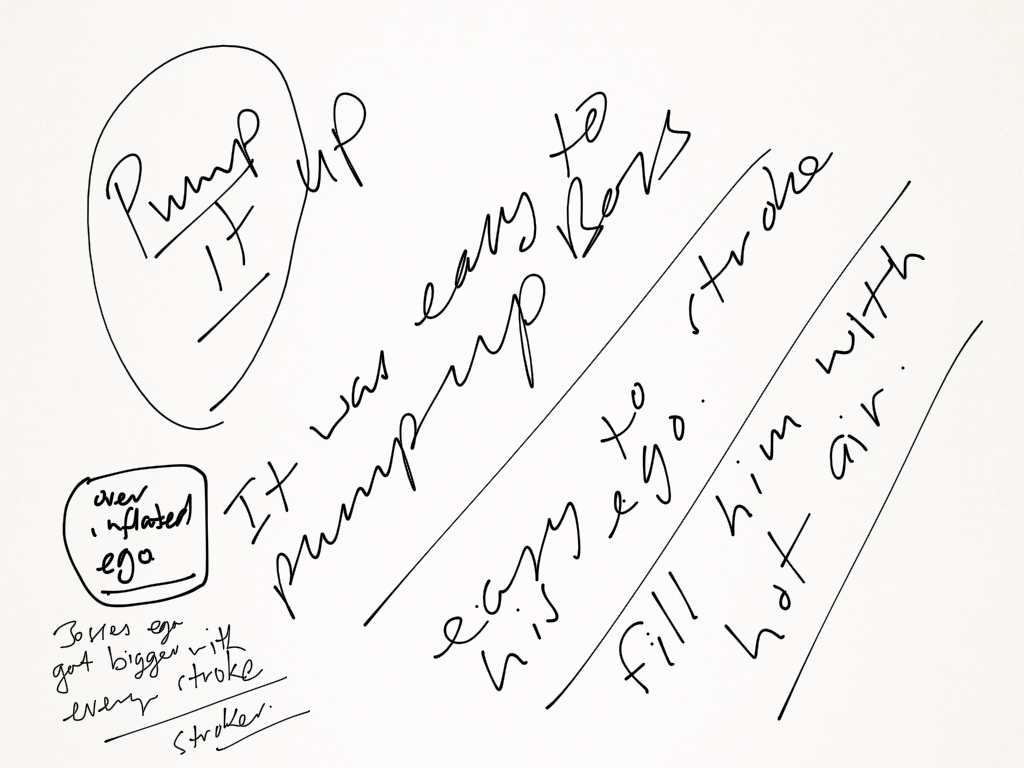 Pump up
It
It was easy to
pump up Boss
easy to stroke
his ego.
fill him with
hot air.
over
inflated
ego
Bosses ego
got bigger with
every stroke
stroker.